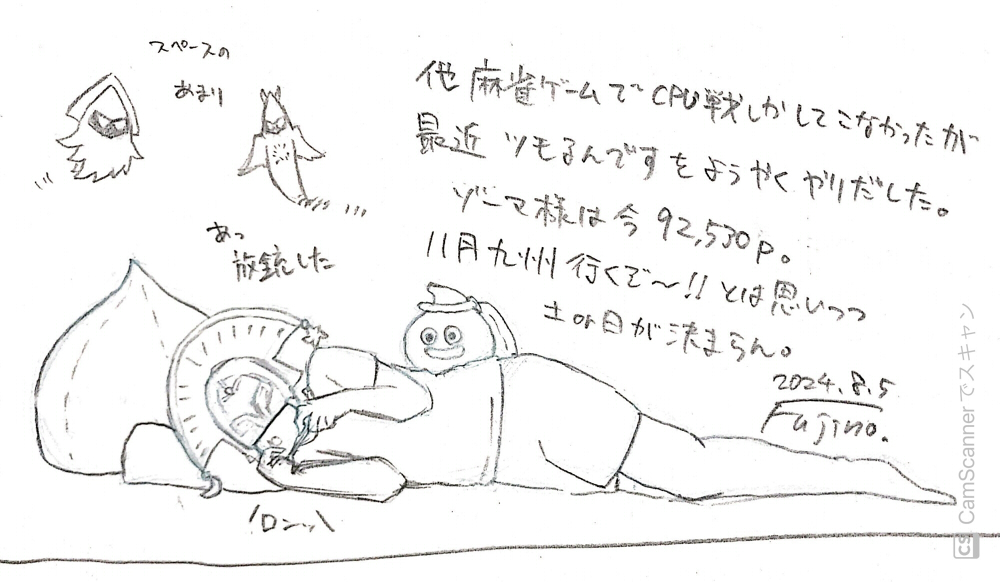 スペースの
あまり
他麻雀ゲームでCPU戦しかしてこなかったが
最近ツモるんですをようやくやりだした。
ゾーマ様は今92,530p。
11月九州行くぞ〜!!とは思いつつ
土or日が決まらん。
2024.8.5
Fujino.
あっ
放銃した
\ロンッ/
CS CamScannerでスキャン